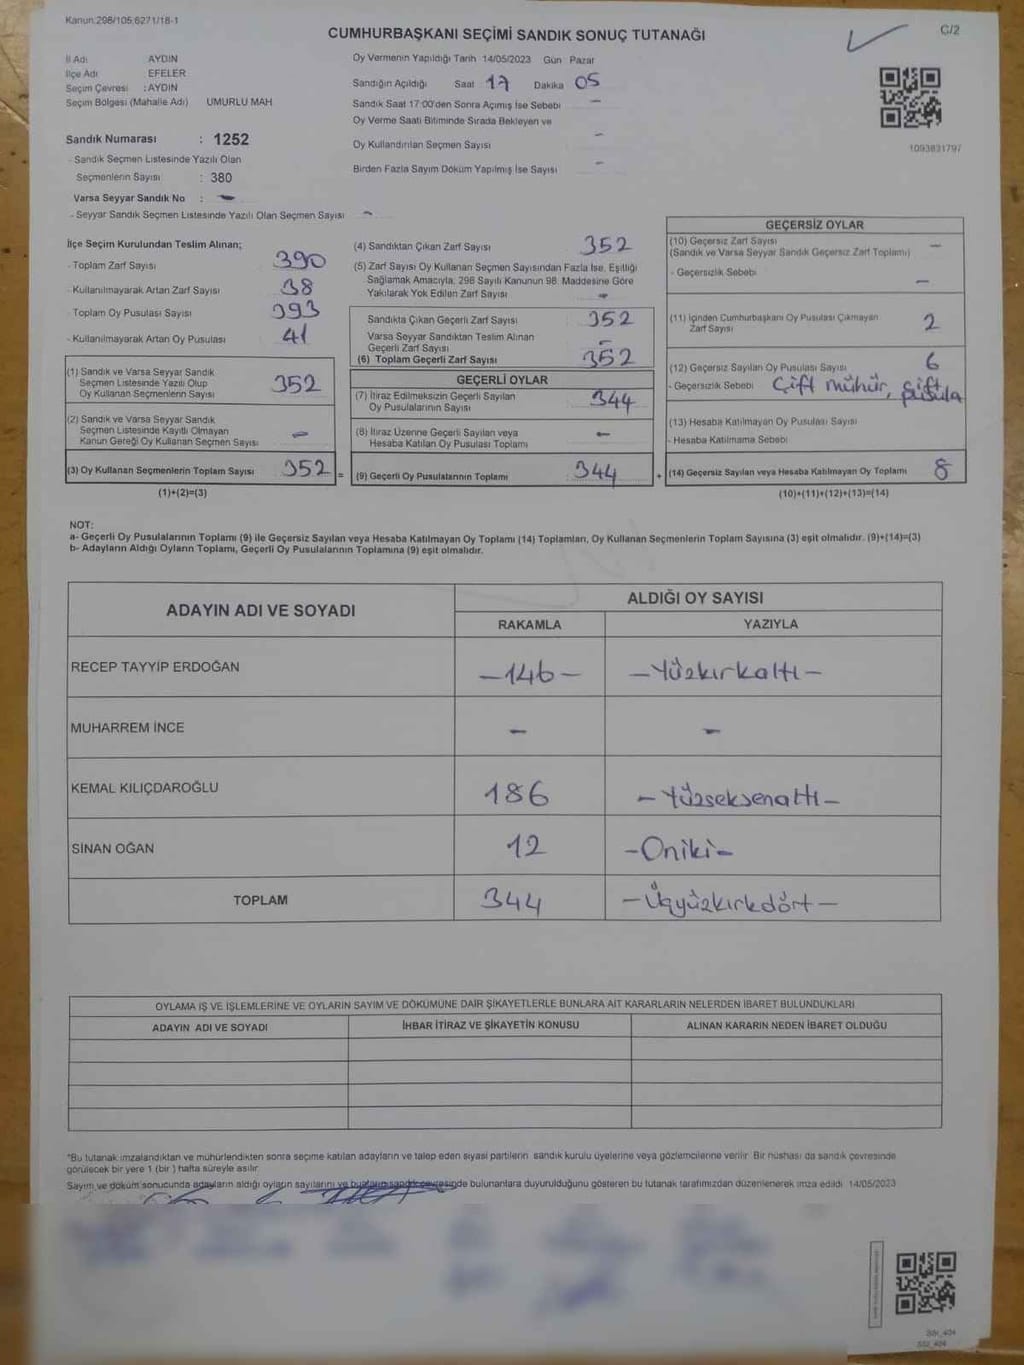 Kanun:298/105,6271/18-1
C/2
CUMHURBAŞKANI SEÇİMİ SANDIK SONUÇ TUTANAĞI
İl Adı AYDIN
İlçe Adı EFELER
Seçim Çevresi : AYDIN
Seçim Bölgesi (Mahalle Adı) UMURLU MAH
Sandık Numarası : 1252
- Sandık Seçmen Listesinde Yazılı Olan
Seçmenlerin Sayısı : 380
Varsa Seyyar Sandık No : -
- Seyyar Sandık Seçmen Listesinde Yazılı Olan Seçmen Sayısı -
Oy Vermenin Yapıldığı Tarih 14/05/2023 Gün Pazar
Sandığın Açıldığı Saat 17 Dakika 05
Sandık Saat 17:00'den Sonra Açımış İse Sebebi -
Oy Verme Saati Bitiminde Sırada Bekleyen ve
Oy Kullandırılan Seçmen Sayısı -
Birden Fazla Sayım Döküm Yapılmış İse Sayısı -
1093831797
İlçe Seçim Kurulundan Teslim Alınan;
- Toplam Zarf Sayısı 390
- Kullanılmayarak Artan Zarf Sayısı 38
- Toplam Oy Pusulası Sayısı 393
- Kullanılmayarak Artan Oy Pusulası 41
(1) Sandık ve Varsa Seyyar Sandık
Seçmen Listesinde Yazılı Olup
Oy Kullanan Seçmenlerin Sayısı 352
(2) Sandık ve Varsa Seyyar Sandık
Seçmen Listesinde Kayıtlı Olmayan
Kanun Gereği Oy Kullanan Seçmen Sayısı -
(3) Oy Kullanan Seçmenlerin Toplam Sayısı 352 =
(1)+(2)=(3)
(4) Sandıktan Çıkan Zarf Sayısı 352
(5) Zarf Sayısı Oy Kullanan Seçmen Sayısından Fazla İse, Eşitliği
Sağlamak Amacıyla, 298 Sayılı Kanunun 98. Maddesine Göre
Yakılarak Yok Edilen Zarf Sayısı -
Sandıkta Çıkan Geçerli Zarf Sayısı 352
Varsa Seyyar Sandıktan Teslim Alınan
Geçerli Zarf Sayısı -
(6) Toplam Geçerli Zarf Sayısı 352
GEÇERLİ OYLAR
(7) İtiraz Edilmeksizin Geçerli Sayılan
Oy Pusulalarının Sayısı 344
(8) İtiraz Üzerine Geçerli Sayılan veya
Hesaba Katılan Oy Pusulası Toplamı -
(9) Geçerli Oy Pusulalarının Toplamı 344 +
GEÇERSİZ OYLAR
(10) Geçersiz Zarf Sayısı -
(Sandık ve Varsa Seyyar Sandık Geçersiz Zarf Toplamı)
- Geçersizlik Sebebi -
(11) İçinden Cumhurbaşkanı Oy Pusulası Çıkmayan
Zarf Sayısı 2
(12) Geçersiz Sayılan Oy Pusulası Sayısı 6
- Geçersizlik Sebebi Çift mühür, çift pusula
(13) Hesaba Katılmayan Oy Pusulası Sayısı
- Hesaba Katılmama Sebebi
(14) Geçersiz Sayılan veya Hesaba Katılmayan Oy Toplamı 8
(10)+(11)+(12)+(13)=(14)
NOT:
a- Geçerli Oy Pusulalarının Toplamı (9) ile Geçersiz Sayılan veya Hesaba Katılmayan Oy Toplamı (14) Toplamları, Oy Kullanan Seçmenlerin Toplam Sayısına (3) eşit olmalıdır. (9)+(14)=(3)
b- Adayların Aldığı Oyların Toplamı, Geçerli Oy Pusulalarının Toplamına (9) eşit olmalıdır.
ADAYIN ADI VE SOYADI ALDIĞI OY SAYISI
RAKAMLA YAZIYLA
RECEP TAYYİP ERDOĞAN -146- -Yüzkırkaltı-
MUHARREM İNCE - -
KEMAL KILIÇDAROĞLU 186 -Yüzseksenaltı-
SİNAN OĞAN 12 -Oniki-
TOPLAM 344 -Üçyüzkırkdört-
OYLAMA İŞ VE İŞLEMLERİNE VE OYLARIN SAYIM VE DÖKÜMÜNE DAİR ŞİKAYETLERLE BUNLARA AİT KARARLARIN NELERDEN İBARET BULUNDUKLARI
ADAYIN ADI VE SOYADI İHBAR İTİRAZ VE ŞİKAYETİN KONUSU ALINAN KARARIN NEDEN İBARET OLDUĞU
*Bu tutanak imzalandıktan ve mühürlendikten sonra seçime katılan adayların ve talep eden siyasi partilerin sandık kurulu üyelerine veya gözlemcilerine verilir. Bir nüshası da sandık çevresinde
görülecek bir yere 1 (bir) hafta süreyle asılır.
Sayım ve döküm sonucunda adayların aldığı oyların sayılarını ve bunların sandık çevresinde bulunanlara duyurulduğunu gösteren bu tutanak tarafımızdan düzenlenerek imza edildi 14/05/2023